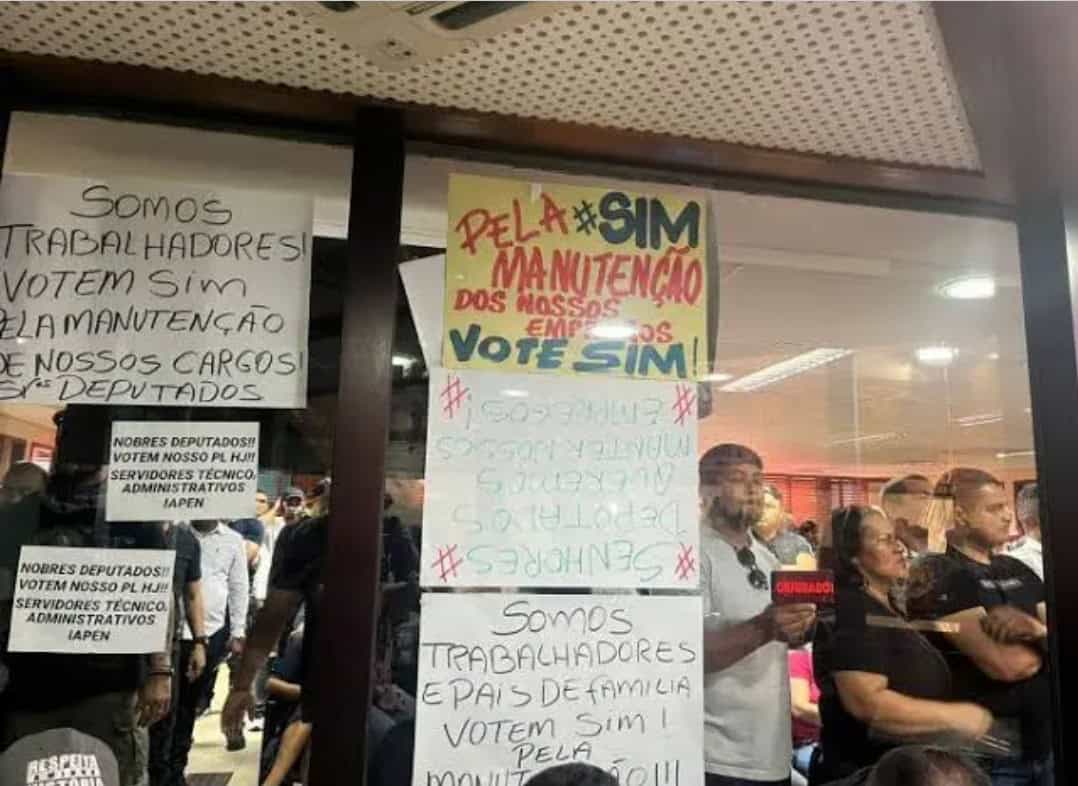 SOMOS
TRABALHADORES!
VOTEM SIM
PELA MANUTENÇÃO
DE NOSSOS CARGOS!
Srs DEPUTADOS
NOBRES DEPUTADOS!!
VOTEM NOSSO PL HJ!!
SERVIDORES TÉCNICO,
ADMINISTRATIVOS
IAPEN
NOBRES DEPUTADOS!!
VOTEM NOSSO PL HJ!!
SERVIDORES TÉCNICO,
ADMINISTRATIVOS
IAPEN
RESPEITA
PELA #SIM
MANUTENÇÃO
DOS NOSSOS
EMPREGOS
VOTE SIM!
# SENHORES #
DEPUTADOS
QUEREMOS
MANTER NOSSOS
# EMPREGOS! #
SOMOS
TRABALHADORES
E PAIS DE FAMILIA
VOTEM SIM!
PELA
MANUTENÇÃO!!!
OBRIGADO!